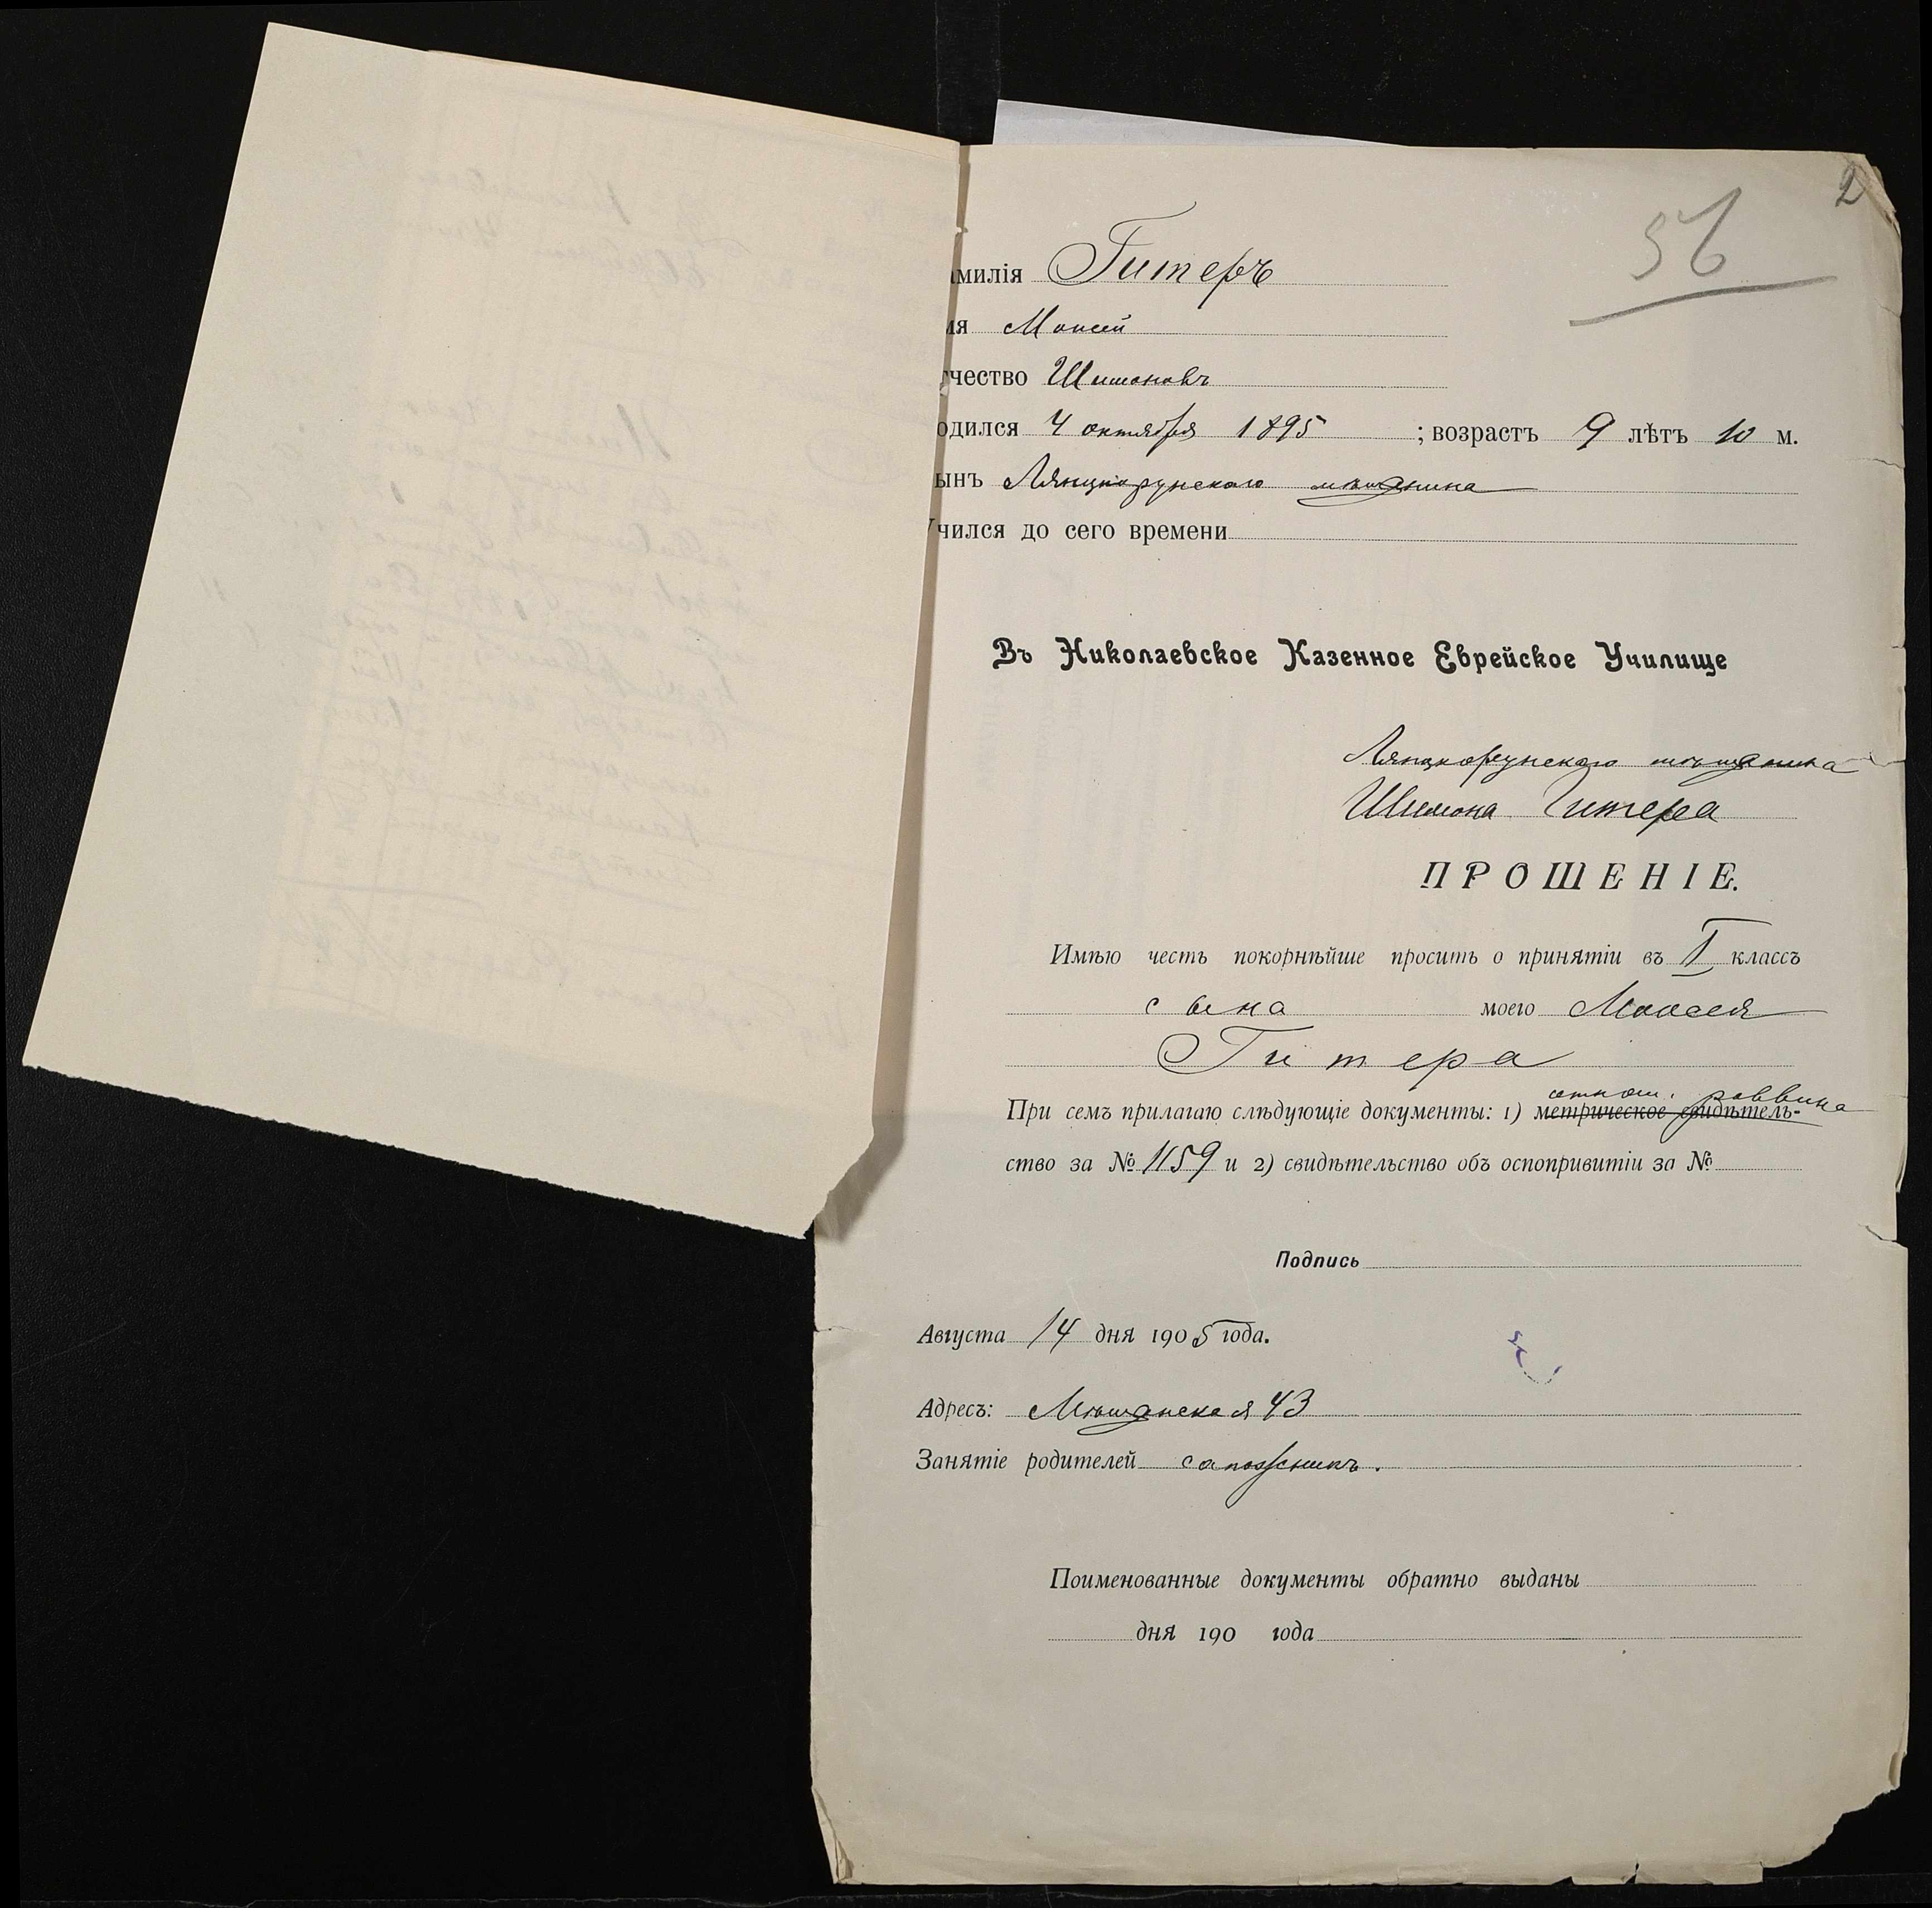 2
56
амилія Гитеръ
мя Моисей
тчество Шимоновъ
одился 4 октября 1895 ; возрастъ 9 лѣтъ 10 м.
ынъ Лянцкорунскаго мѣщанина
чился до сего времени
Въ Николаевское Казенное Еврейское Училище
Лянцкорунскаго мѣщанина
Шимона Гитера
ПРОШЕНІЕ.
Имѣю честь покорнѣйше просить о принятіи въ I классъ
сына моего Моисея
Гитера
отнош. раввина
При семъ прилагаю слѣдующіе документы: 1) метрическое свидѣтель-
ство за № 1159 и 2) свидѣтельство объ оспопривитіи за №
Подпись
Августа 14 дня 1905 года.
Адресъ: Мѣщанская 43
Занятіе родителей сапожникъ.
Поименованные документы обратно выданы
дня 190 года